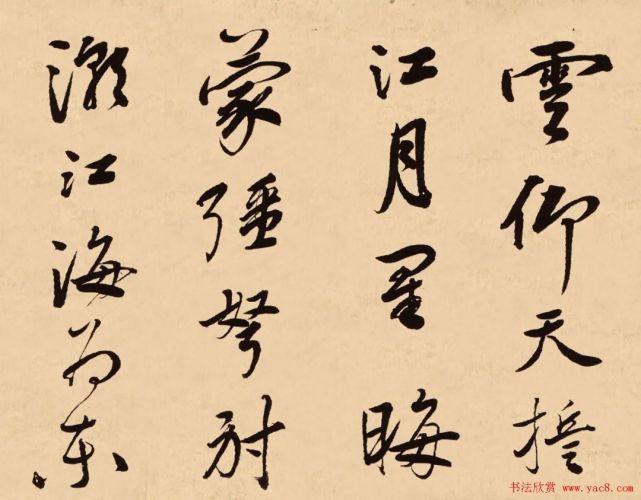 雲仰天
江月星晦
蒙彊弩射
潮江海為東
书法欣赏 www.yac8.com